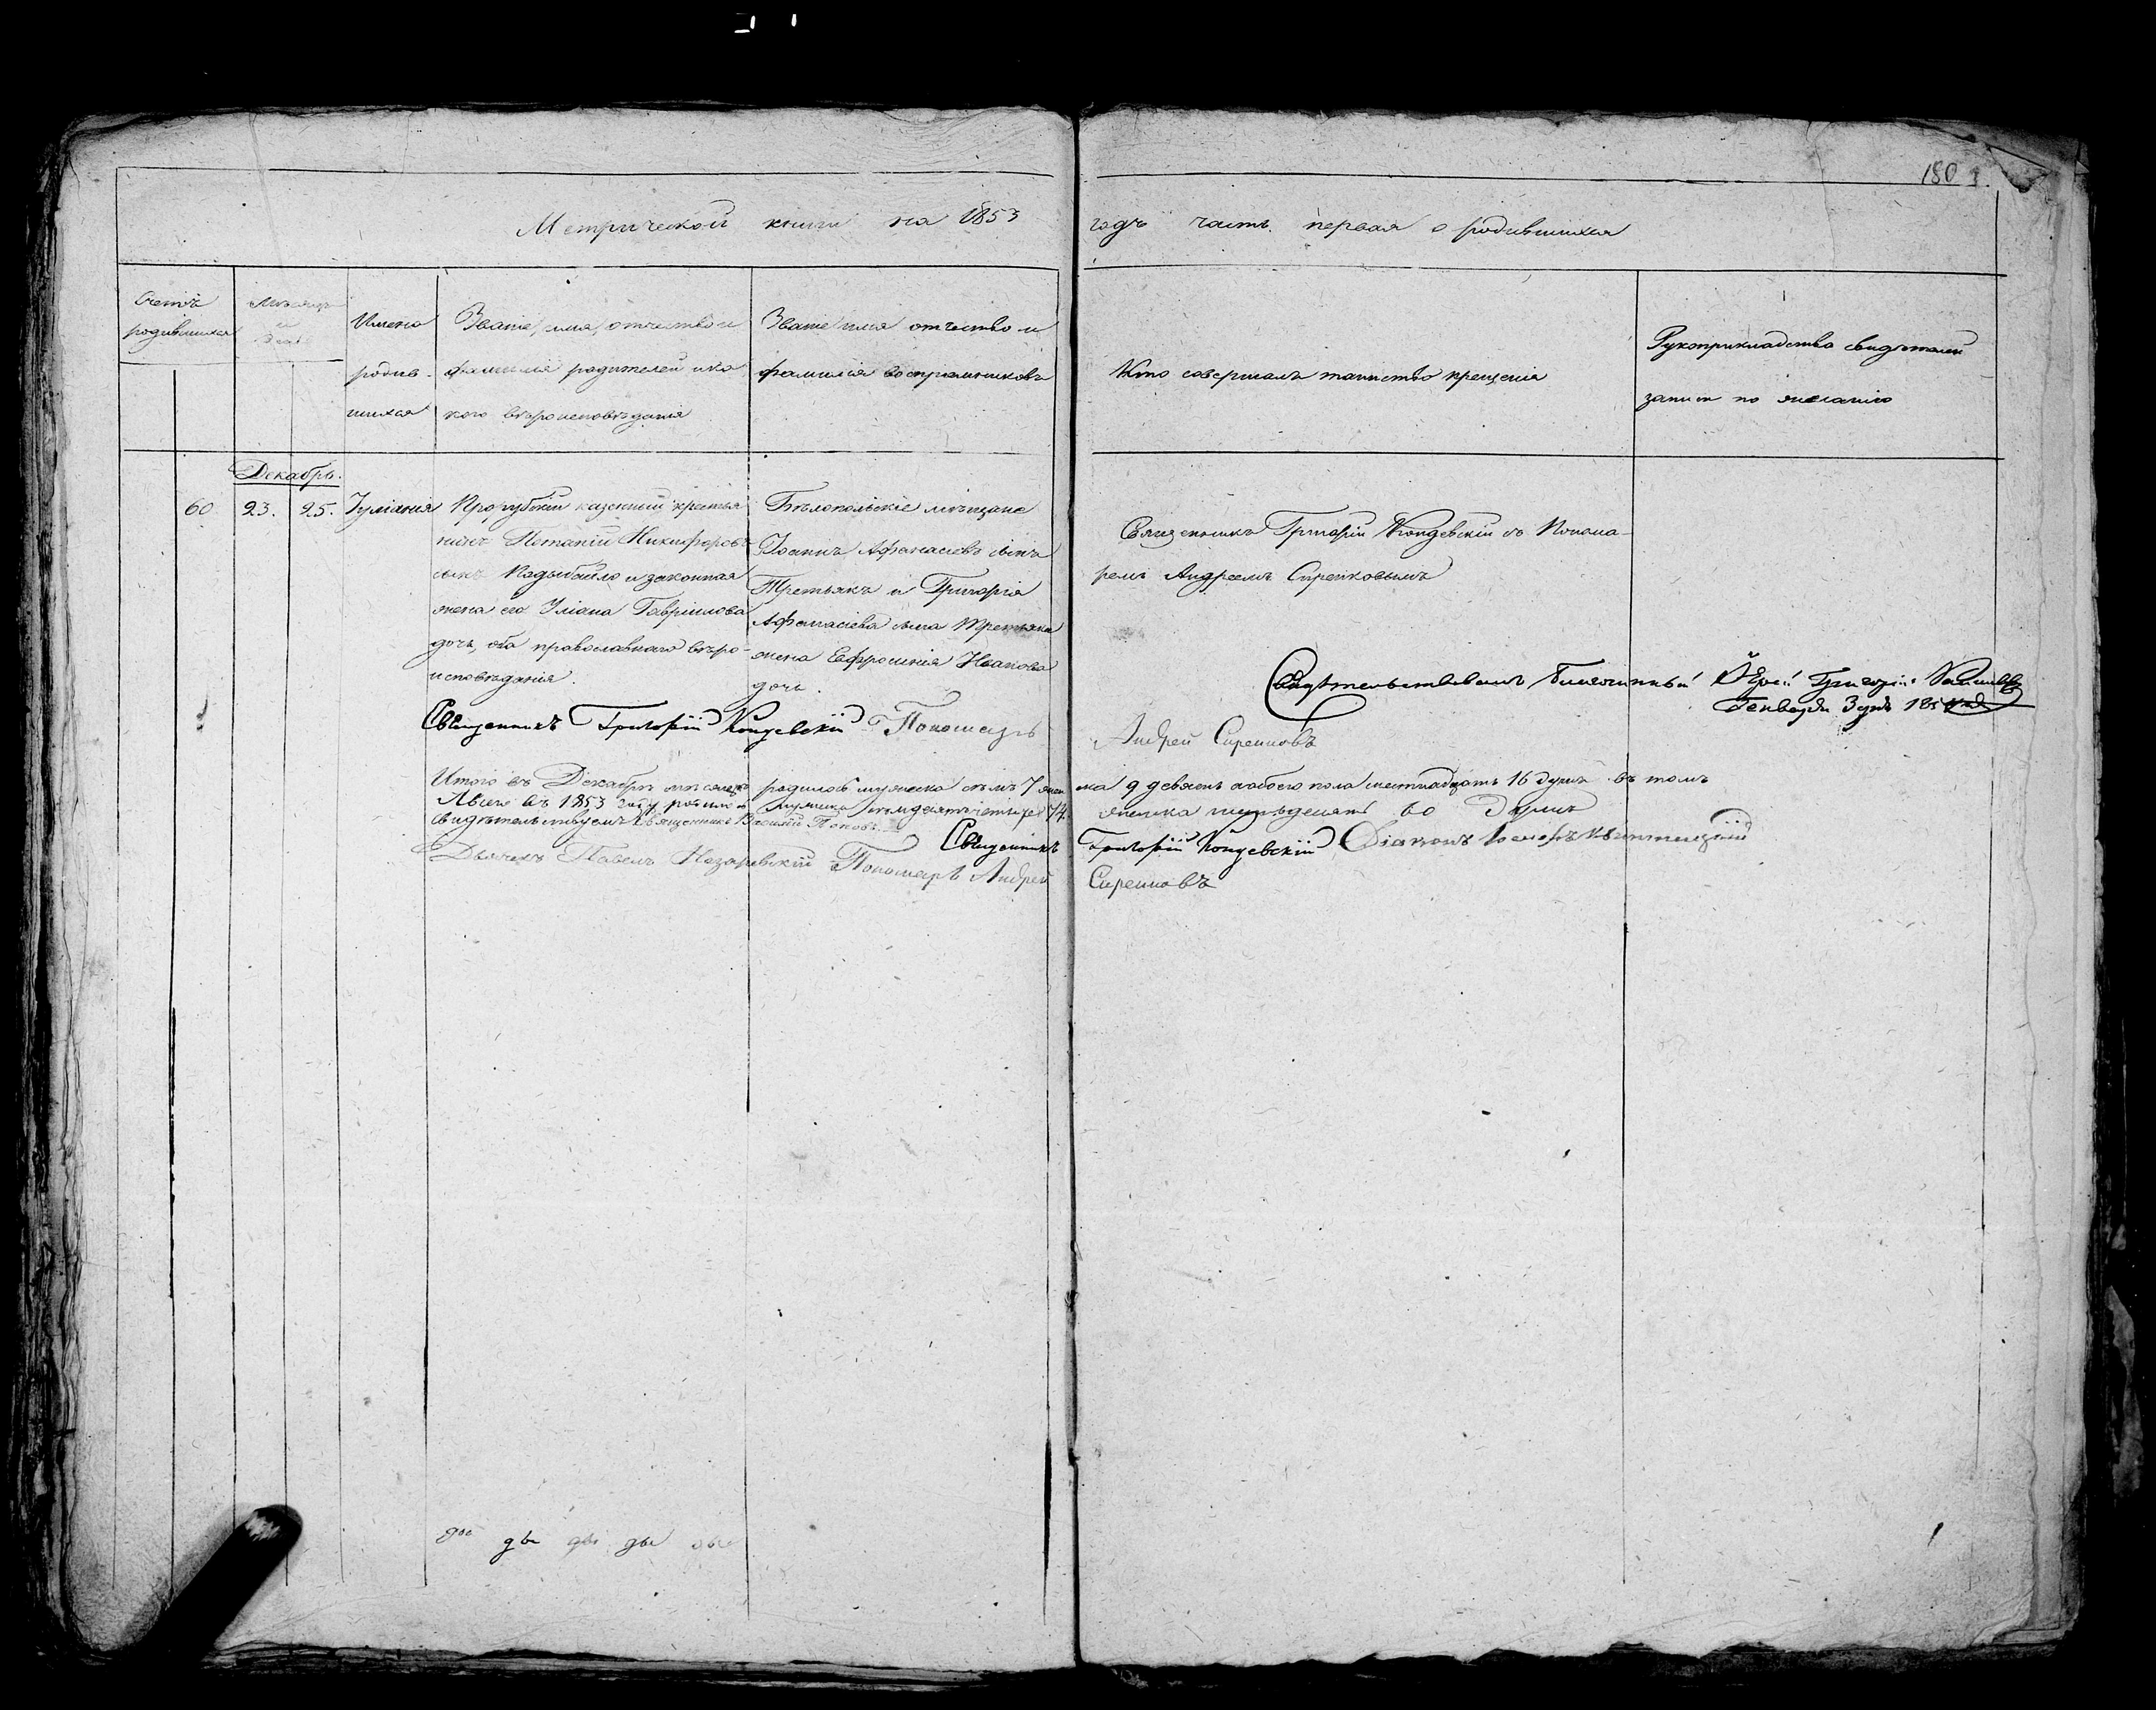 180
Метрической книги на 1853 годъ часть первая о родившихся
Счетъ родившихся
Мѣсяцъ и день
Имена родив-
шихся
Званіе, имя, отчество и
фамилія родителей и ка-
кого вѣроисповѣданія
Званіе имя отчество и
фамилія воспріемниковъ
Кто совершалъ таинство крещенія
Рукоприкладство свидѣтелей
записи по желанію
Декабрь.
60 23. 25. Іуліанія
казенный крестья
нинъ Потапій Никифоровъ
сынъ Кадыбайло и законная
жена его Уліана Гавріилова
дочь, оба православнаго вѣро-
исповѣданія.
Бѣлопольскіе мѣщане
Іоаннъ Афанасіевъ сынъ
Третьякъ и Григорія
Афанасіева сына Третьяка
жена Евфросинія Иванова
дочь.
Священникъ Григорій Кондевскій съ Понома-
ремъ Андреемъ
Свидѣтельствовалъ Благочинный Іерей Григорій
Генваря 3 дня
Священникъ Григорій Кондевскій Пономарь Андрей
Итого въ Декабрѣ мѣсяцѣ родилось мужеска семь 7 женска 9 девять обоего пола шестнадцать 16 душъ въ томъ
А всего въ 1853 году родилось мужеска семдесятъ четыре 74. женска шестьдесятъ 60 душъ
свидѣтельствуемъ Священникъ Василій Поповъ
Священникъ Григорій Кондевскій Діаконъ
Дьячекъ Павелъ Назаревскій Пономарь Андрей
ды ды ды ды ды